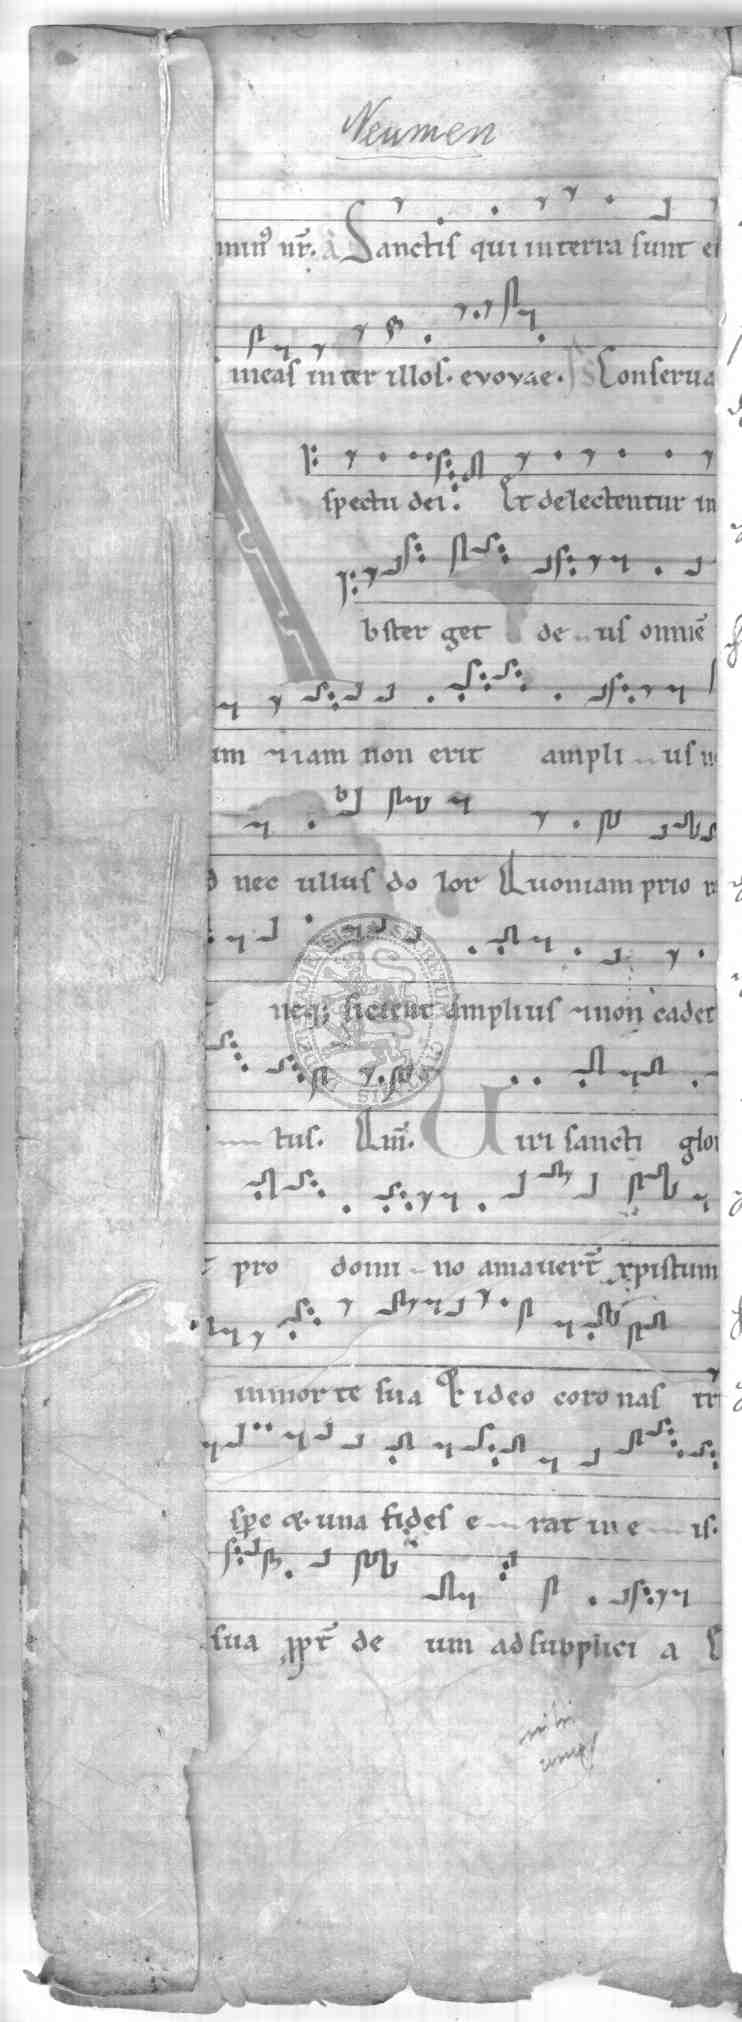 Neumen
minꝰ nr̃. A Sanctis qui interra sunt ei
meas inter illos. evovae. Conserva
spectu dei. Et delectentur in
bster get de us omnē
am non erit ampli us n
nec ullus do lor Quoniam prio r
neq; sicient amplius non cadet
tus. Qm̃. Uiri sancti glor
pro domi no amavert̃ xpistum
inmor te sua Et ideo coro nas tr
spe una fides e rat in e is.
sua ppt̃ de um adsupplici a